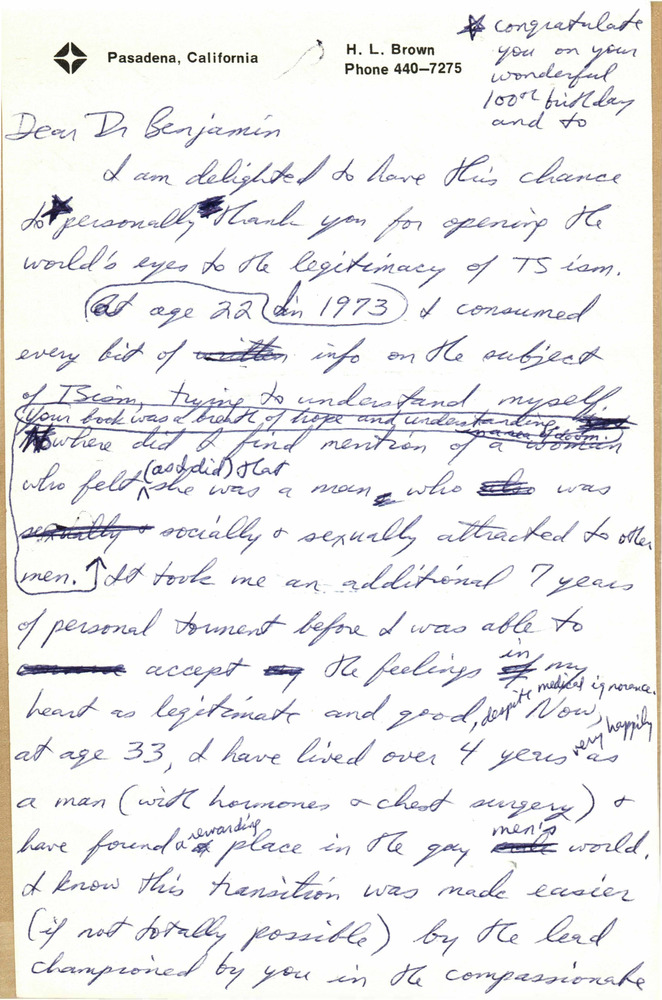 Pasadena, California
H. L. Brown
Phone 440–7275
congratulate
you on your
wonderful
100th birthday
and to
Dear Dr Benjamin
I am delighted to have this chance
to personally thank you for opening the
world's eyes to the legitimacy of TSism.
At age 22 in 1973 I consumed
every bit of written info on the subject
of TSism, trying to understand myself.
Your book was a breath of hope and understanding
in an era of doom.
Nowhere did I find mention of a woman
who felt (as I did) that she was a man, who also was
sexually & socially & sexually attracted to other
men. It took me an additional 7 years
of personal torment before I was able to
accept the feelings in my
heart as legitimate and good, despite medical ignorance. Now,
at age 33, I have lived over 4 years very happily as
a man (with hormones & chest surgery) &
have found a rewarding place in the gay men's world.
I know this transition was made easier
(if not totally possible) by the lead
championed by you in the compassionate